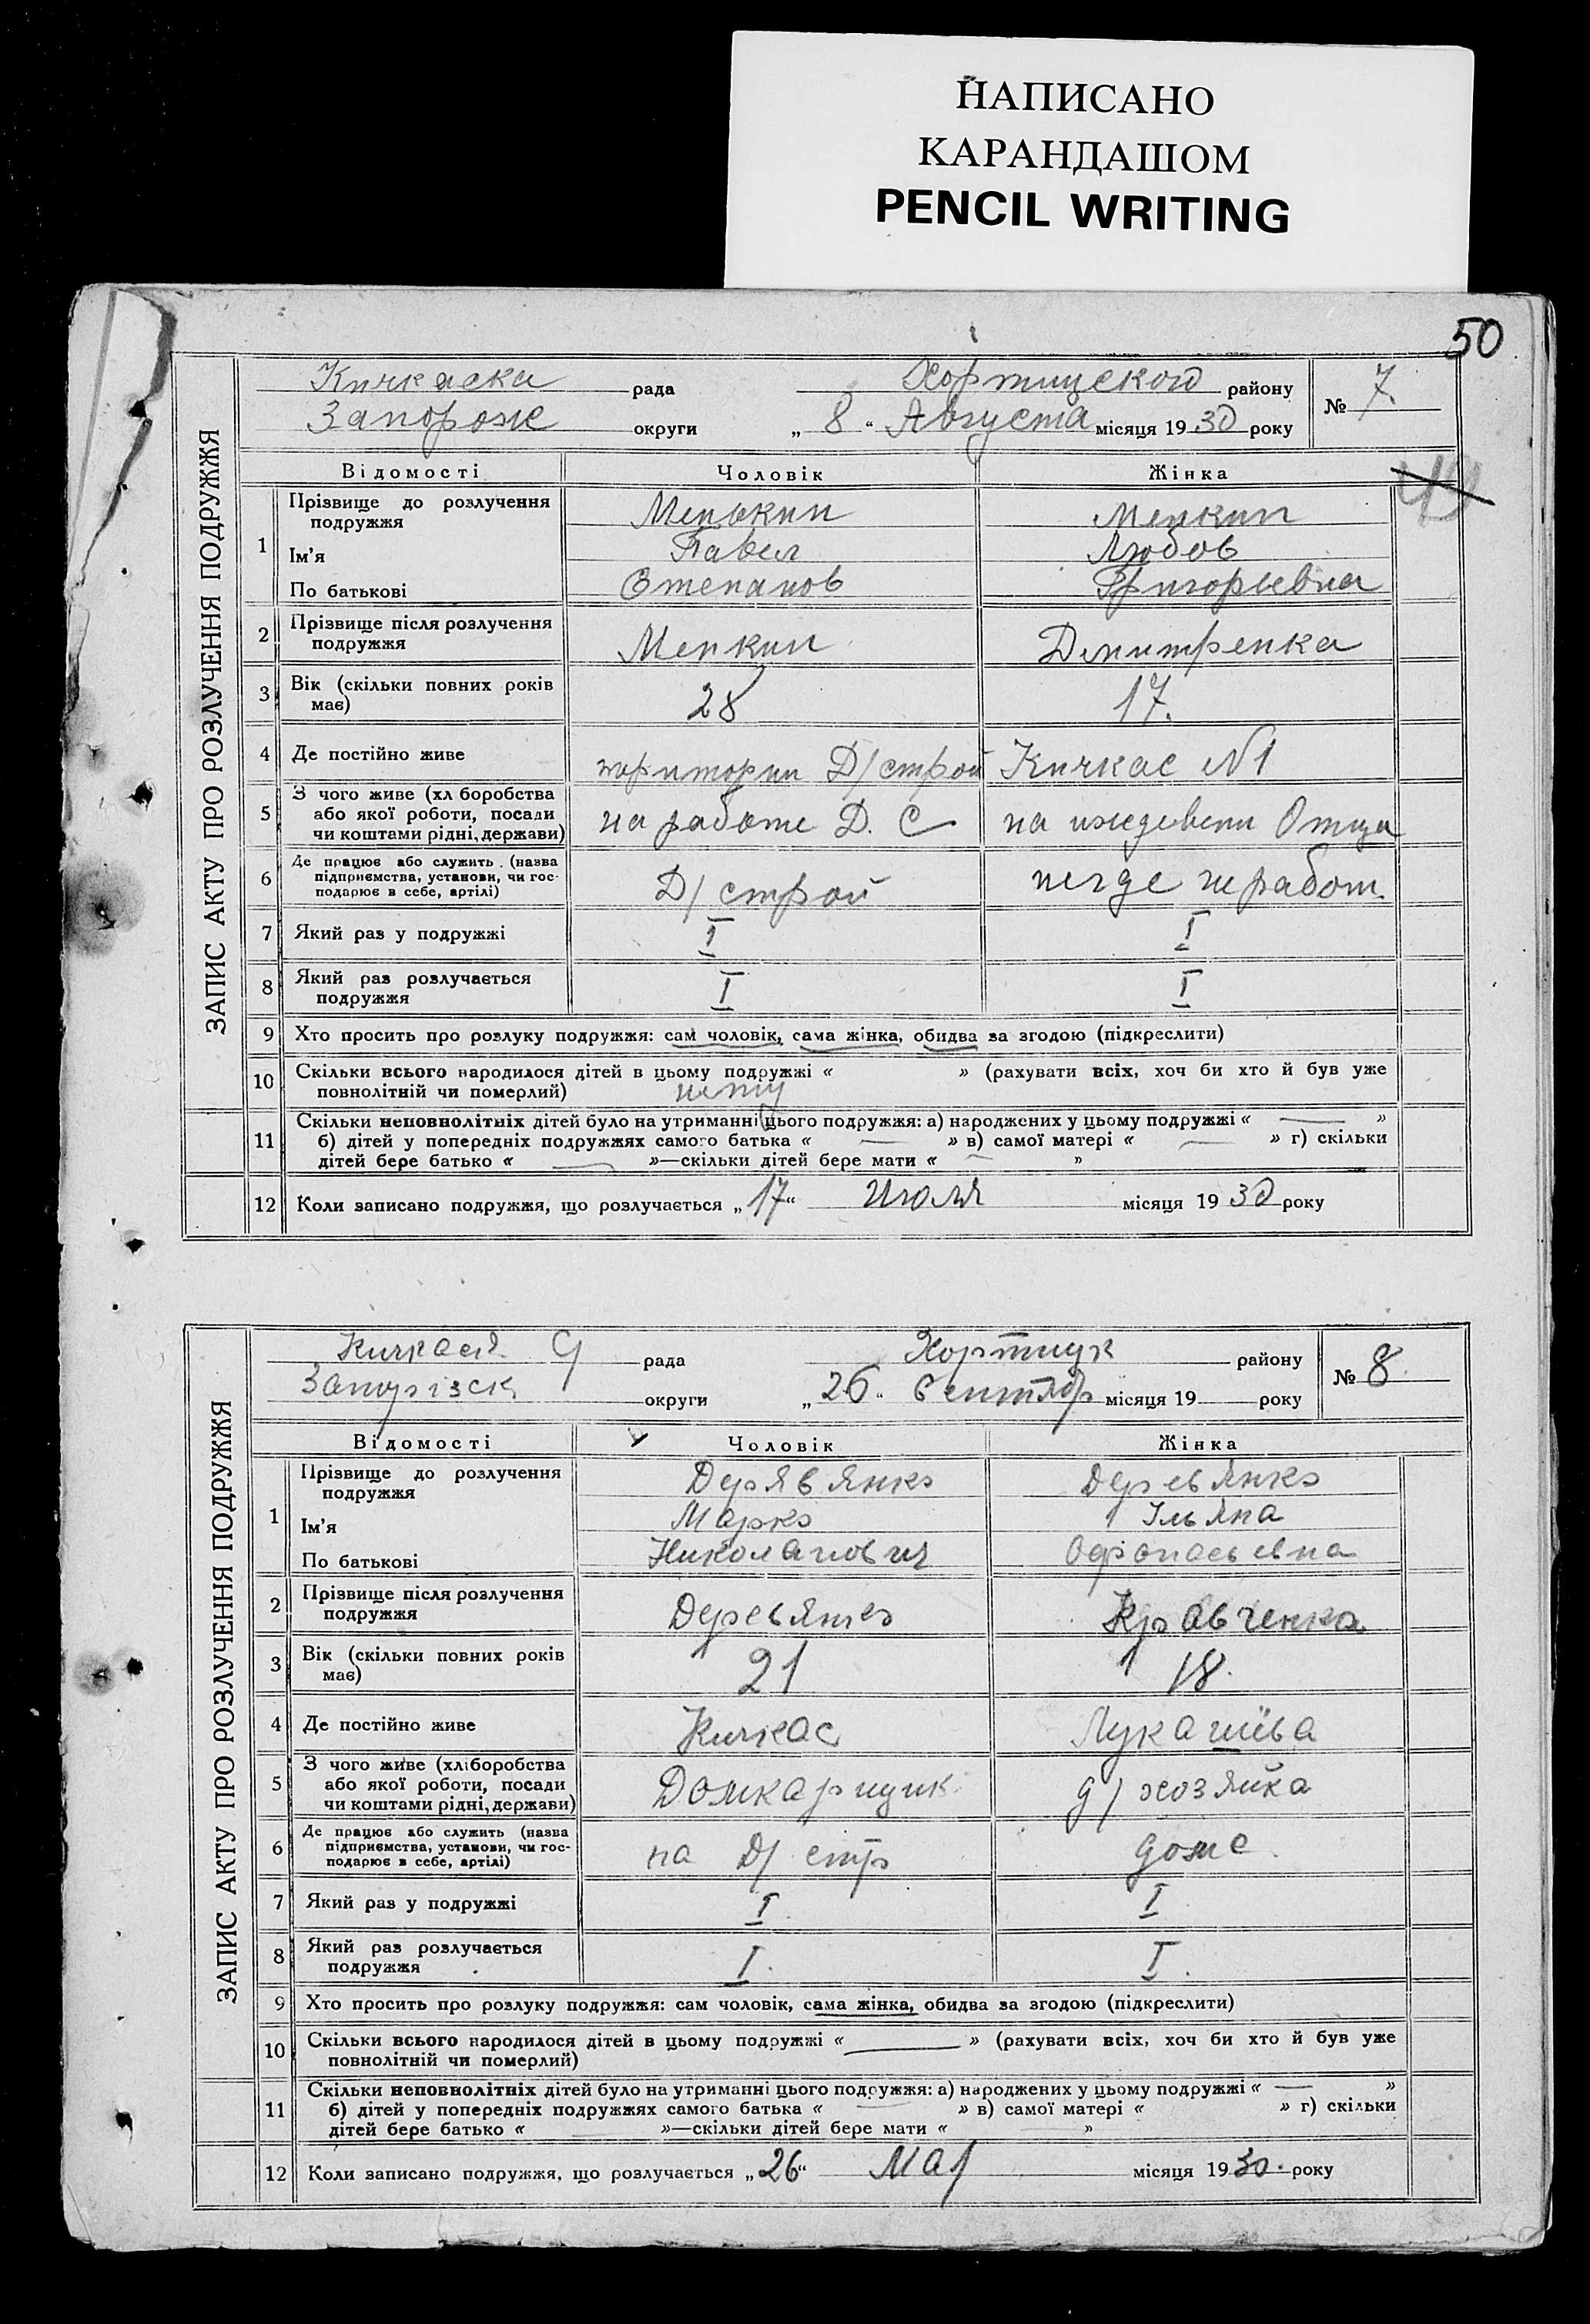 НАПИСАНО
КАРАНДАШОМ
PENCIL WRITING
50
ЗАПИС АКТУ ПРО РОЗЛУЧЕННЯ ПОДРУЖЖЯ
Кичкаска рада Хортицского району № 7.
Запорож округи „ 8 “ Августа місяця 19 30 року
Відомості Чоловік Жінка
49
1 Прізвище до розлучення подружжя Менькин Менкин
Ім'я Павел Любов
По батькові Степанов Григорьевна
2 Прізвище після розлучення
подружжя Менкин Дмитренка
3 Вік (скільки повних років
має) 28 17.
4 Де постійно живе територии Д/строй Кичкас №1
5 З чого живе (хл боробства
або якої роботи, посади
чи коштами рідні, держави) на работе Д. С на иждевени Отца
6 Де працює або служить. (назва
підприємства, установи, чи гос-
подарює в себе, артілі) Д/строй негде не работ.
7 Який раз у подружжі I I
8 Який раз розлучається
подружжя I I
9 Хто просить про розлуку подружжя: сам чоловік, сама жінка, обидва за згодою (підкреслити)
10 Скільки всього народилося дітей в цьому подружжі « » (рахувати всіх, хоч би хто й був уже
повнолітній чи померлий) нету
11 Скільки неповнолітніх дітей було на утриманні цього подружжя: а) народжених у цьому подружжі « — »
б) дітей у попередніх подружжях самого батька « — » в) самої матері « — » г) скільки
дітей бере батько « — »—скільки дітей бере мати « — »
12 Коли записано подружжя, що розлучається „ 17 “ Июля місяця 19 30 року
ЗАПИС АКТУ ПРО РОЗЛУЧЕННЯ ПОДРУЖЖЯ
Кичкаск. рада Хортицк району № 8.
Запорізск округи „ 26 “ Сентябр місяця 19 року
Відомості Чоловік Жінка
1 Прізвище до розлучення
подружжя Дерявянко Деревянко
Ім'я Марко Ільяна
По батькові Николаиович Офонасьевна
2 Прізвище після розлучення
подружжя Деревянко Кравченко
3 Вік (скільки повних років
має) 21 18.
4 Де постійно живе Кичкас Лукашіва
5 З чого живе (хліборобства
або якої роботи, посади
чи коштами рідні, держави) Домкарщик д/хозяйка
6 Де працює або служить (назва
підприємства, установи, чи гос-
подарює в себе, артілі) на Д/стр доме.
7 Який раз у подружжі I. I
8 Який раз розлучається
подружжя I. I.
9 Хто просить про розлуку подружжя: сам чоловік, сама жінка, обидва за згодою (підкреслити)
10 Скільки всього народилося дітей в цьому подружжі « — » (рахувати всіх, хоч би хто й був уже
повнолітній чи померлий)
11 Скільки неповнолітніх дітей було на утриманні цього подружжя: а) народжених у цьому подружжі « — »
б) дітей у попередніх подружжях самого батька « — » в) самої матері « » г) скільки
дітей бере батько « — »—скільки дітей бере мати « »
12 Коли записано подружжя, що розлучається „ 26 “ Мая місяця 19 30. року